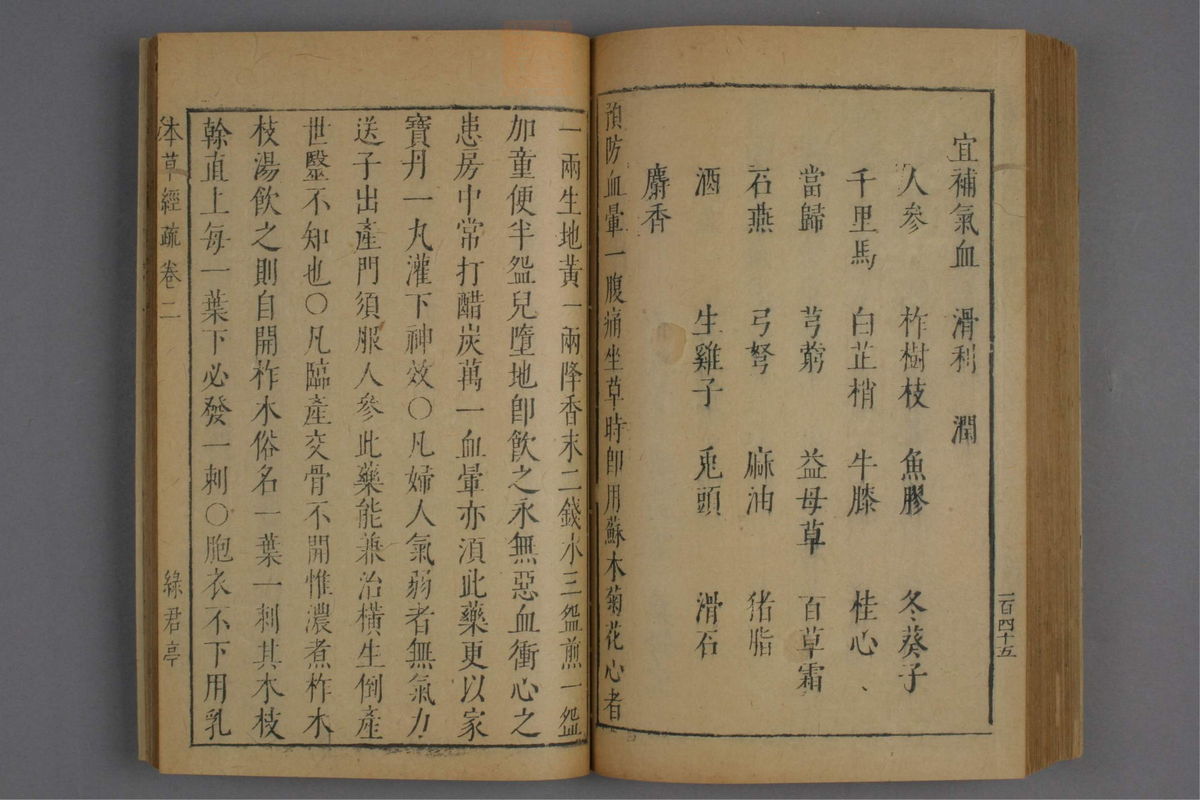 宜補氣血 滑利 潤
人參 柞樹枝 魚膠 冬葵子
千里馬 白芷梢 牛膝 桂心
當歸 芎藭 益母草 百草霜
石燕 弓弩 麻油 猪脂
酒 生雞子 兎頭 滑石
麝香
預防血暈一腹痛坐草時即用蘇木菊花心者
一百四十五
一兩生地黃一兩降香末二錢水三盌煎一盌
加童便半盌兒墮地即飲之永無惡血衝心之
患房中常打醋炭萬一血暈亦須此藥更以家
寶丹一丸灌下神效〇凡婦人氣弱者無氣力
送子出產門須服人參此藥能兼治橫生倒產
世醫不知也〇凡臨產交骨不開惟濃煮柞木
枝湯飲之則自開柞木俗名一葉一刺其木枝
榦直上每一葉下必發一刺〇胞衣不下用乳
本草經疏 卷二 綠君亭